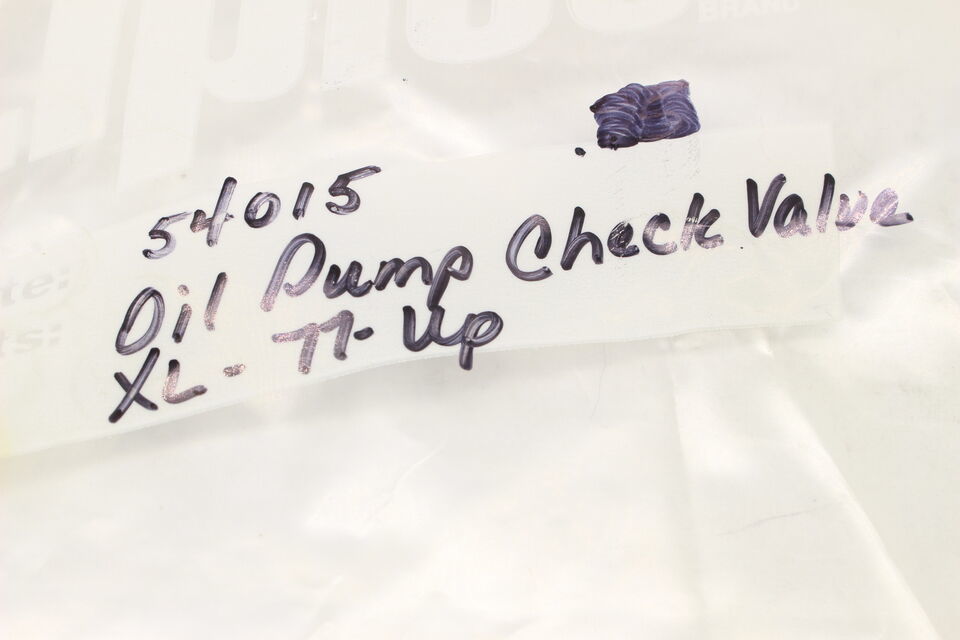 BRAND
54015
Oil Pump Check Valve
XL- 77- Up